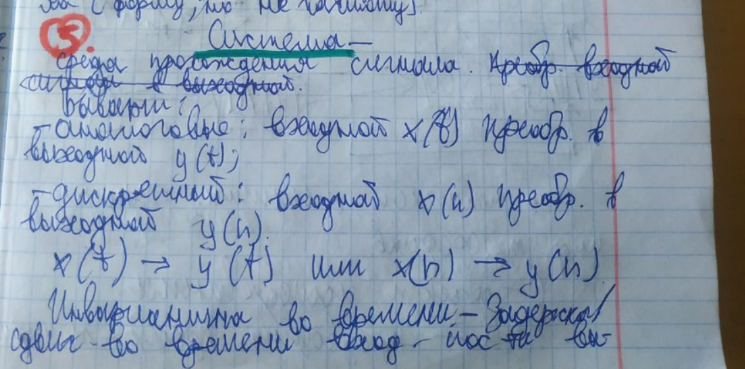 ва (форму, но не частоту)
5. Система —
среда прохождения сигнала. Преобр. входной
сигнал в выходной.
Бывают:
- аналоговые: входной x(t) преобр. в
выходной y(t);
- дискретный: входной x(n) преобр. в
выходной y(n).
x(t) → y(t) или x(n) → y(n)
Инвариантна во времени – Задержка/
сдвиг во времени вход. пос-ти вы-